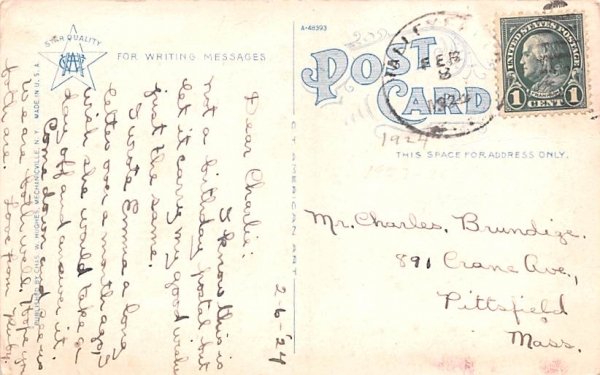 STAR QUALITY
FOR WRITING MESSAGES
A-48393
POST
CARD
THIS SPACE FOR ADDRESS ONLY.
UNITED STATES POSTAGE
1 CENT 1
FEB
8
1924
1924
MADE IN U.S.A.
PUBLISHED BY CHAS. W. HUGHES, MECHANICVILLE, N.Y.
C.T. AMERICAN ART
2-6-'24
Dear Charlie:
I know this is
not a birthday postal but
let it carry my good wishes
just the same.
I wrote Emma a long
letter over a month ago, I
wish she would take a
day off and answer it.
Come down and see us
we are both well. Hope you
both are. Love from
Mr. Charles, Brundige.
891 Crane Ave.,
Pittsfield
Mass.